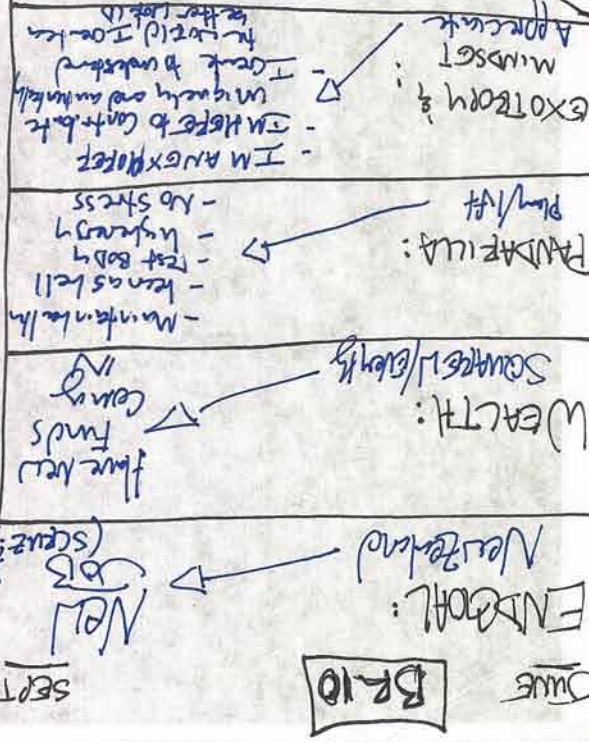 JUNE
BR.10
SEPT
ENDGOAL:
New Zealand
NEW
JOB
WEALTH:
SQUARE W/
Have New
Funds
Coming
IN
PANDAFILLA:
Play/lift
- Maintain health
- lean as hell
- Best BODY
- High energy
- No stress
EXOTROPY &
MINDSET :
Appreciate
- IM AN EXPLORER
- IM HERE to contribute
uniquely and authentically
- I create to understand
the world I create a
better world